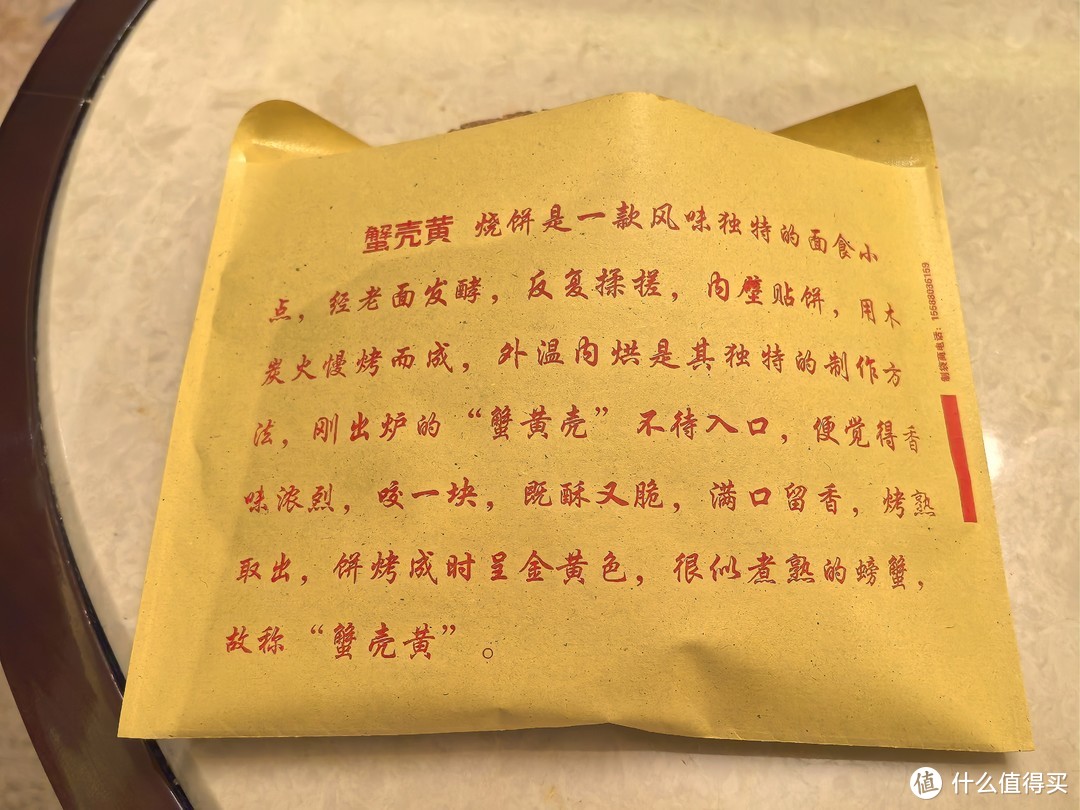 蟹壳黄 烧饼是一款风味独特的面食小
点，经老面发酵，反复揉搓，内壁贴饼，用木
炭火慢烤而成，外温内烘是其独特的制作方
法，刚出炉的“蟹黄壳”不待入口，便觉得香
味浓烈，咬一块，既酥又脆，满口留香，烤熟
取出，饼烤成时呈金黄色，很似煮熟的螃蟹，
故称“蟹壳黄”。
制袋商电话：15588036159
值 什么值得买